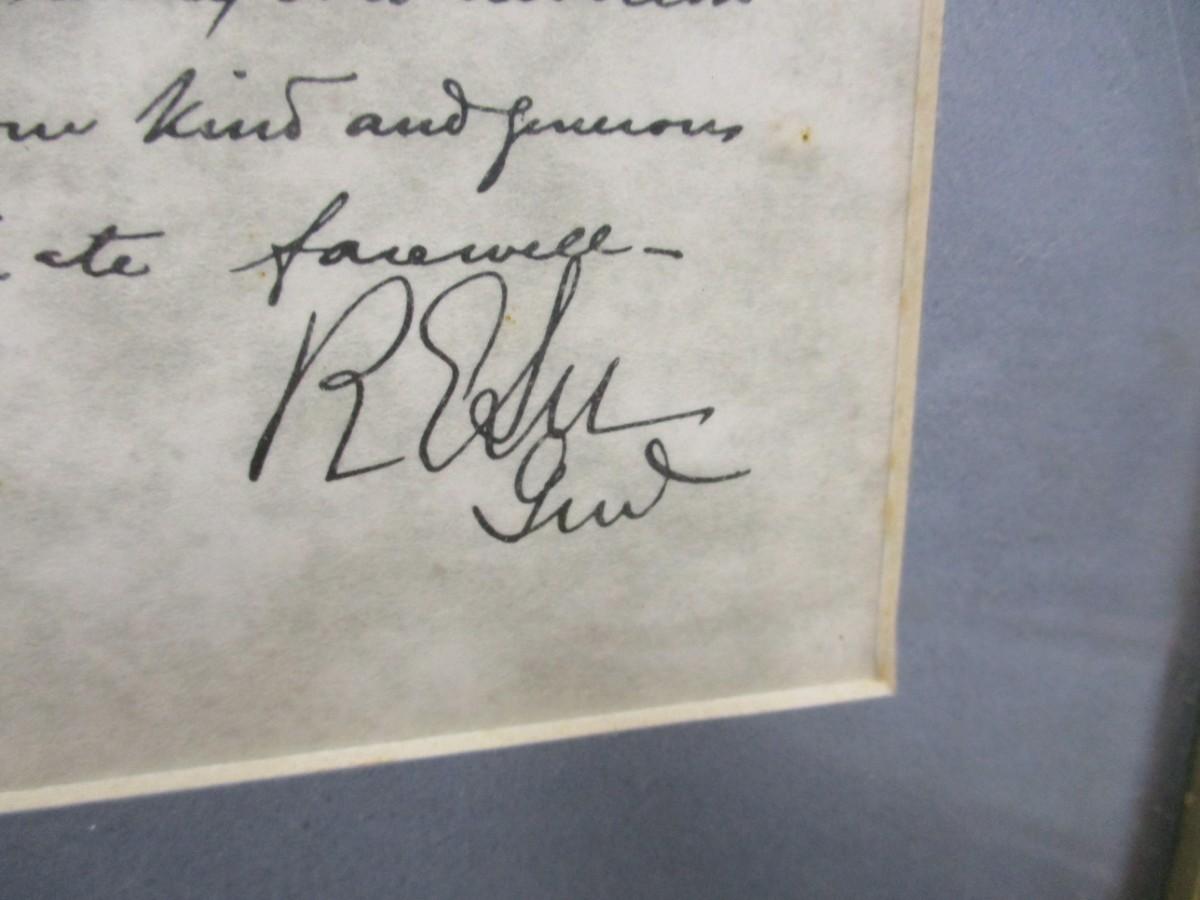 kind and generous
ate farewell—
R E Lee
Genl